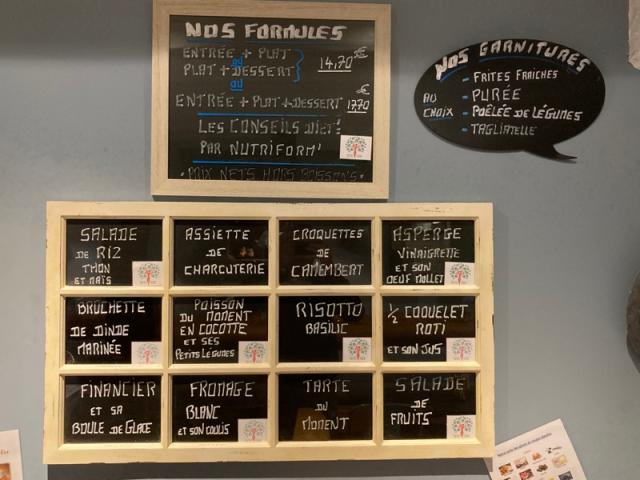 NOS FORMULES
ENTRÉE + PLAT
OU
PLAT + DESSERT
14,70€
OU
ENTRÉE + PLAT + DESSERT 17,70€
LES CONSEILS DIET'
PAR NUTRIFORM'
• PRIX NETS HORS BOISSONS •
NOS GARNITURES
AU CHOIX
- FRITES FRAICHES
- PURÉE
- POÊLÉE DE LÉGUMES
- TAGLIATELLE
SALADE
DE RIZ
THON
ET MAÏS
ASSIETTE
DE
CHARCUTERIE
CROQUETTES
DE
CAMEMBERT
ASPERGE
VINAIGRETTE
ET SON
OEUF MOLLET
BROCHETTE
DE DINDE
MARINÉE
POISSON
DU MOMENT
EN COCOTTE
ET SES
PETITS LÉGUMES
RISOTTO
BASILIC
1/2 COQUELET
ROTI
ET SON JUS
FINANCIER
ET SA
BOULE DE GLACE
FROMAGE
BLANC
ET SON COULIS
TARTE
DU
MOMENT
SALADE
DE
FRUITS